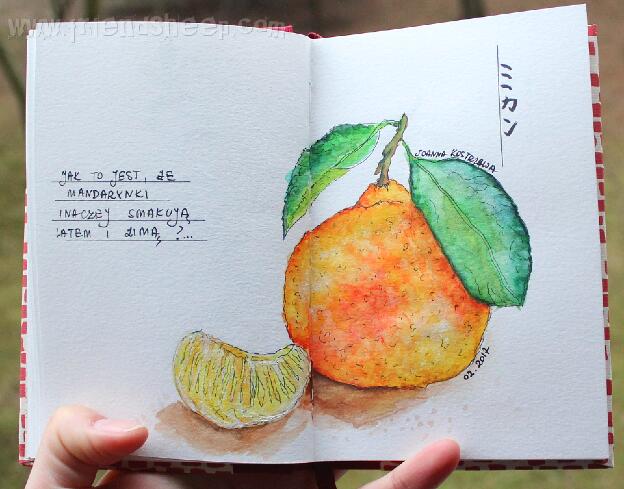 www.friendsheep.com
JAK TO JEST, ŻE
MANDARYNKI
INACZEJ SMAKUJĄ
LATEM I ZIMĄ?...
ミカン
JOANNA
02.2017